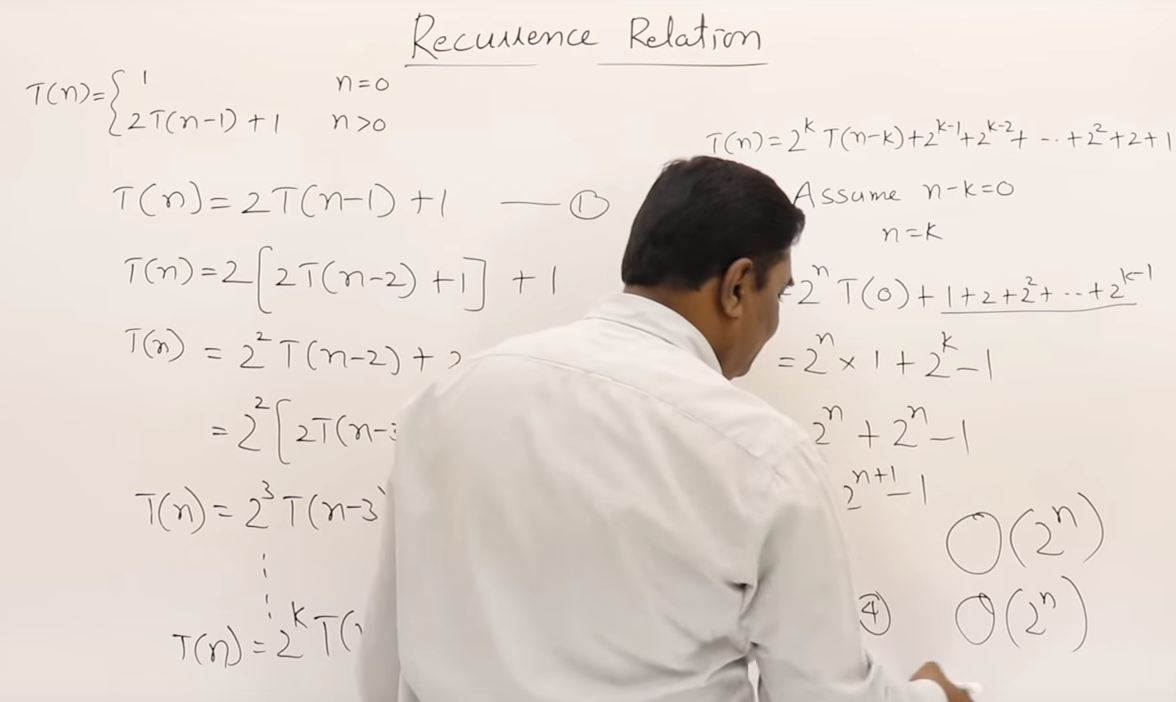 Recurrence Relation
T(n)={ 1 n=0
2T(n-1)+1 n>0
T(n)=2T(n-1)+1 —— ①
T(n)=2[2T(n-2)+1]+1
T(n)=2²T(n-2)+
=2²[2T(n-3
T(n)=2³T(n-3)
⋮
T(n)=2^k T(
T(n)=2^k T(n-k)+2^(k-1)+2^(k-2)+ -- +2²+2+1
Assume n-k=0
n=k
=2^n T(0)+1+2+2²+ -- +2^(k-1)
=2^n × 1+2^k-1
2^n+2^n-1
2^(n+1)-1
O(2^n)
④ O(2^n)